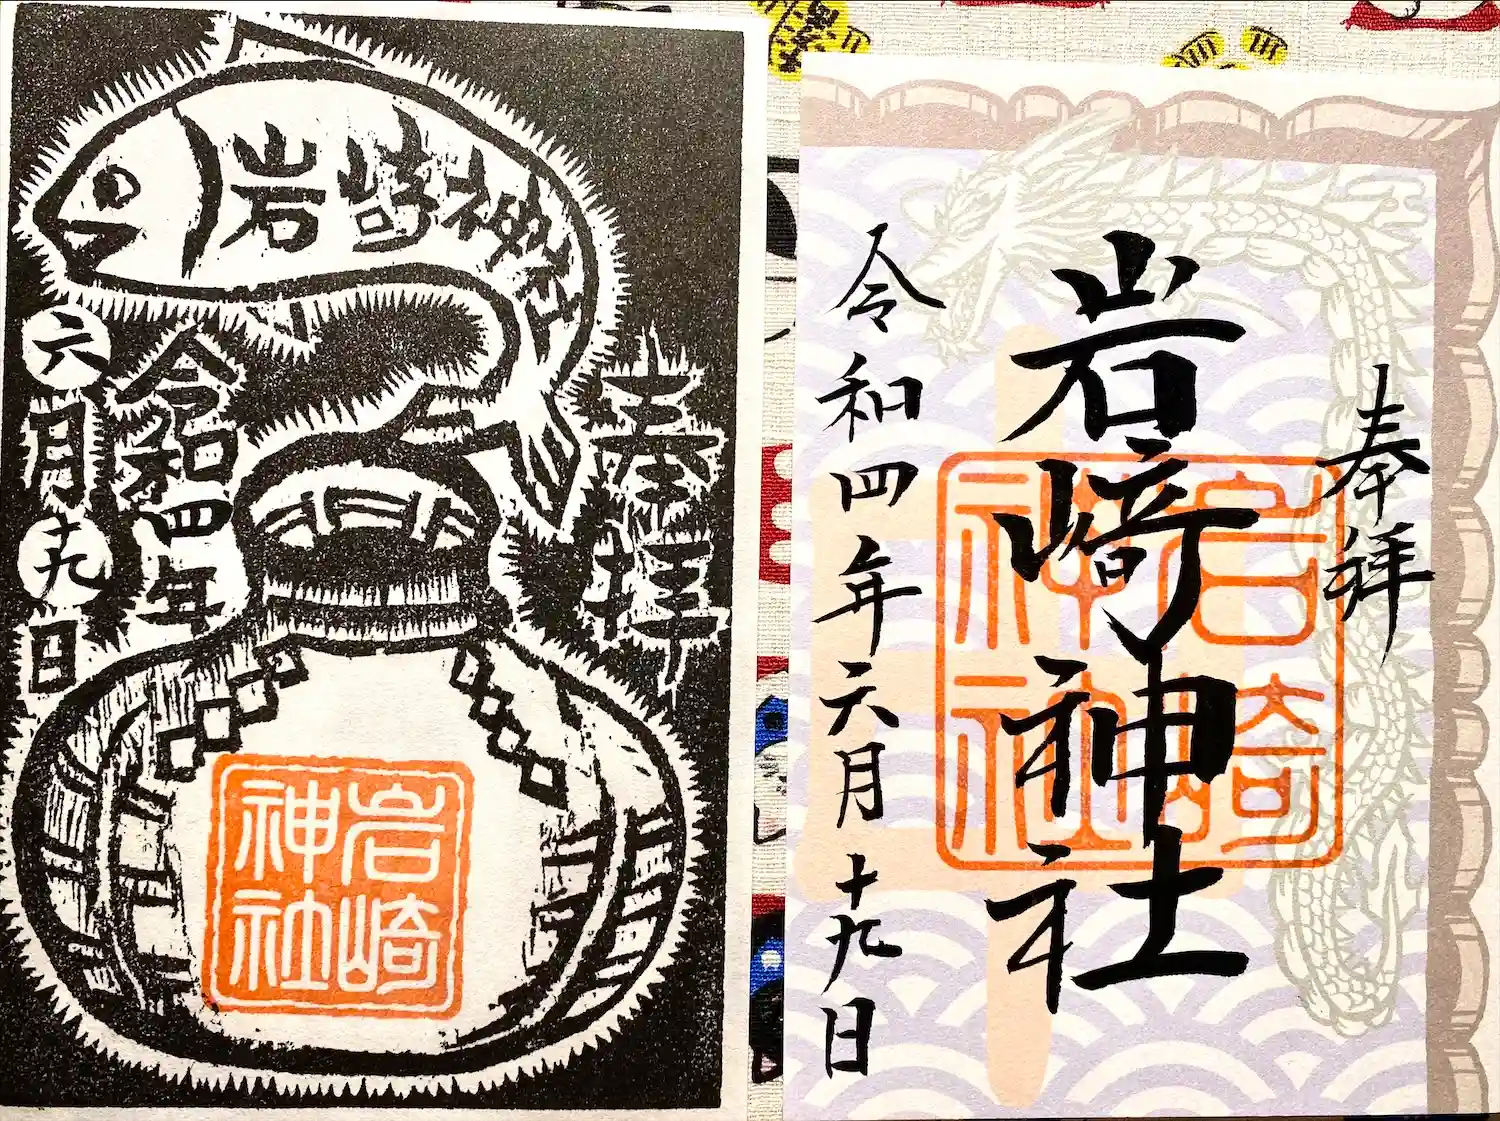 岩崎神社
奉拝
令和四年
六月十九日
岩崎神社
奉拝
岩崎神社
岩崎神社
令和四年六月十九日